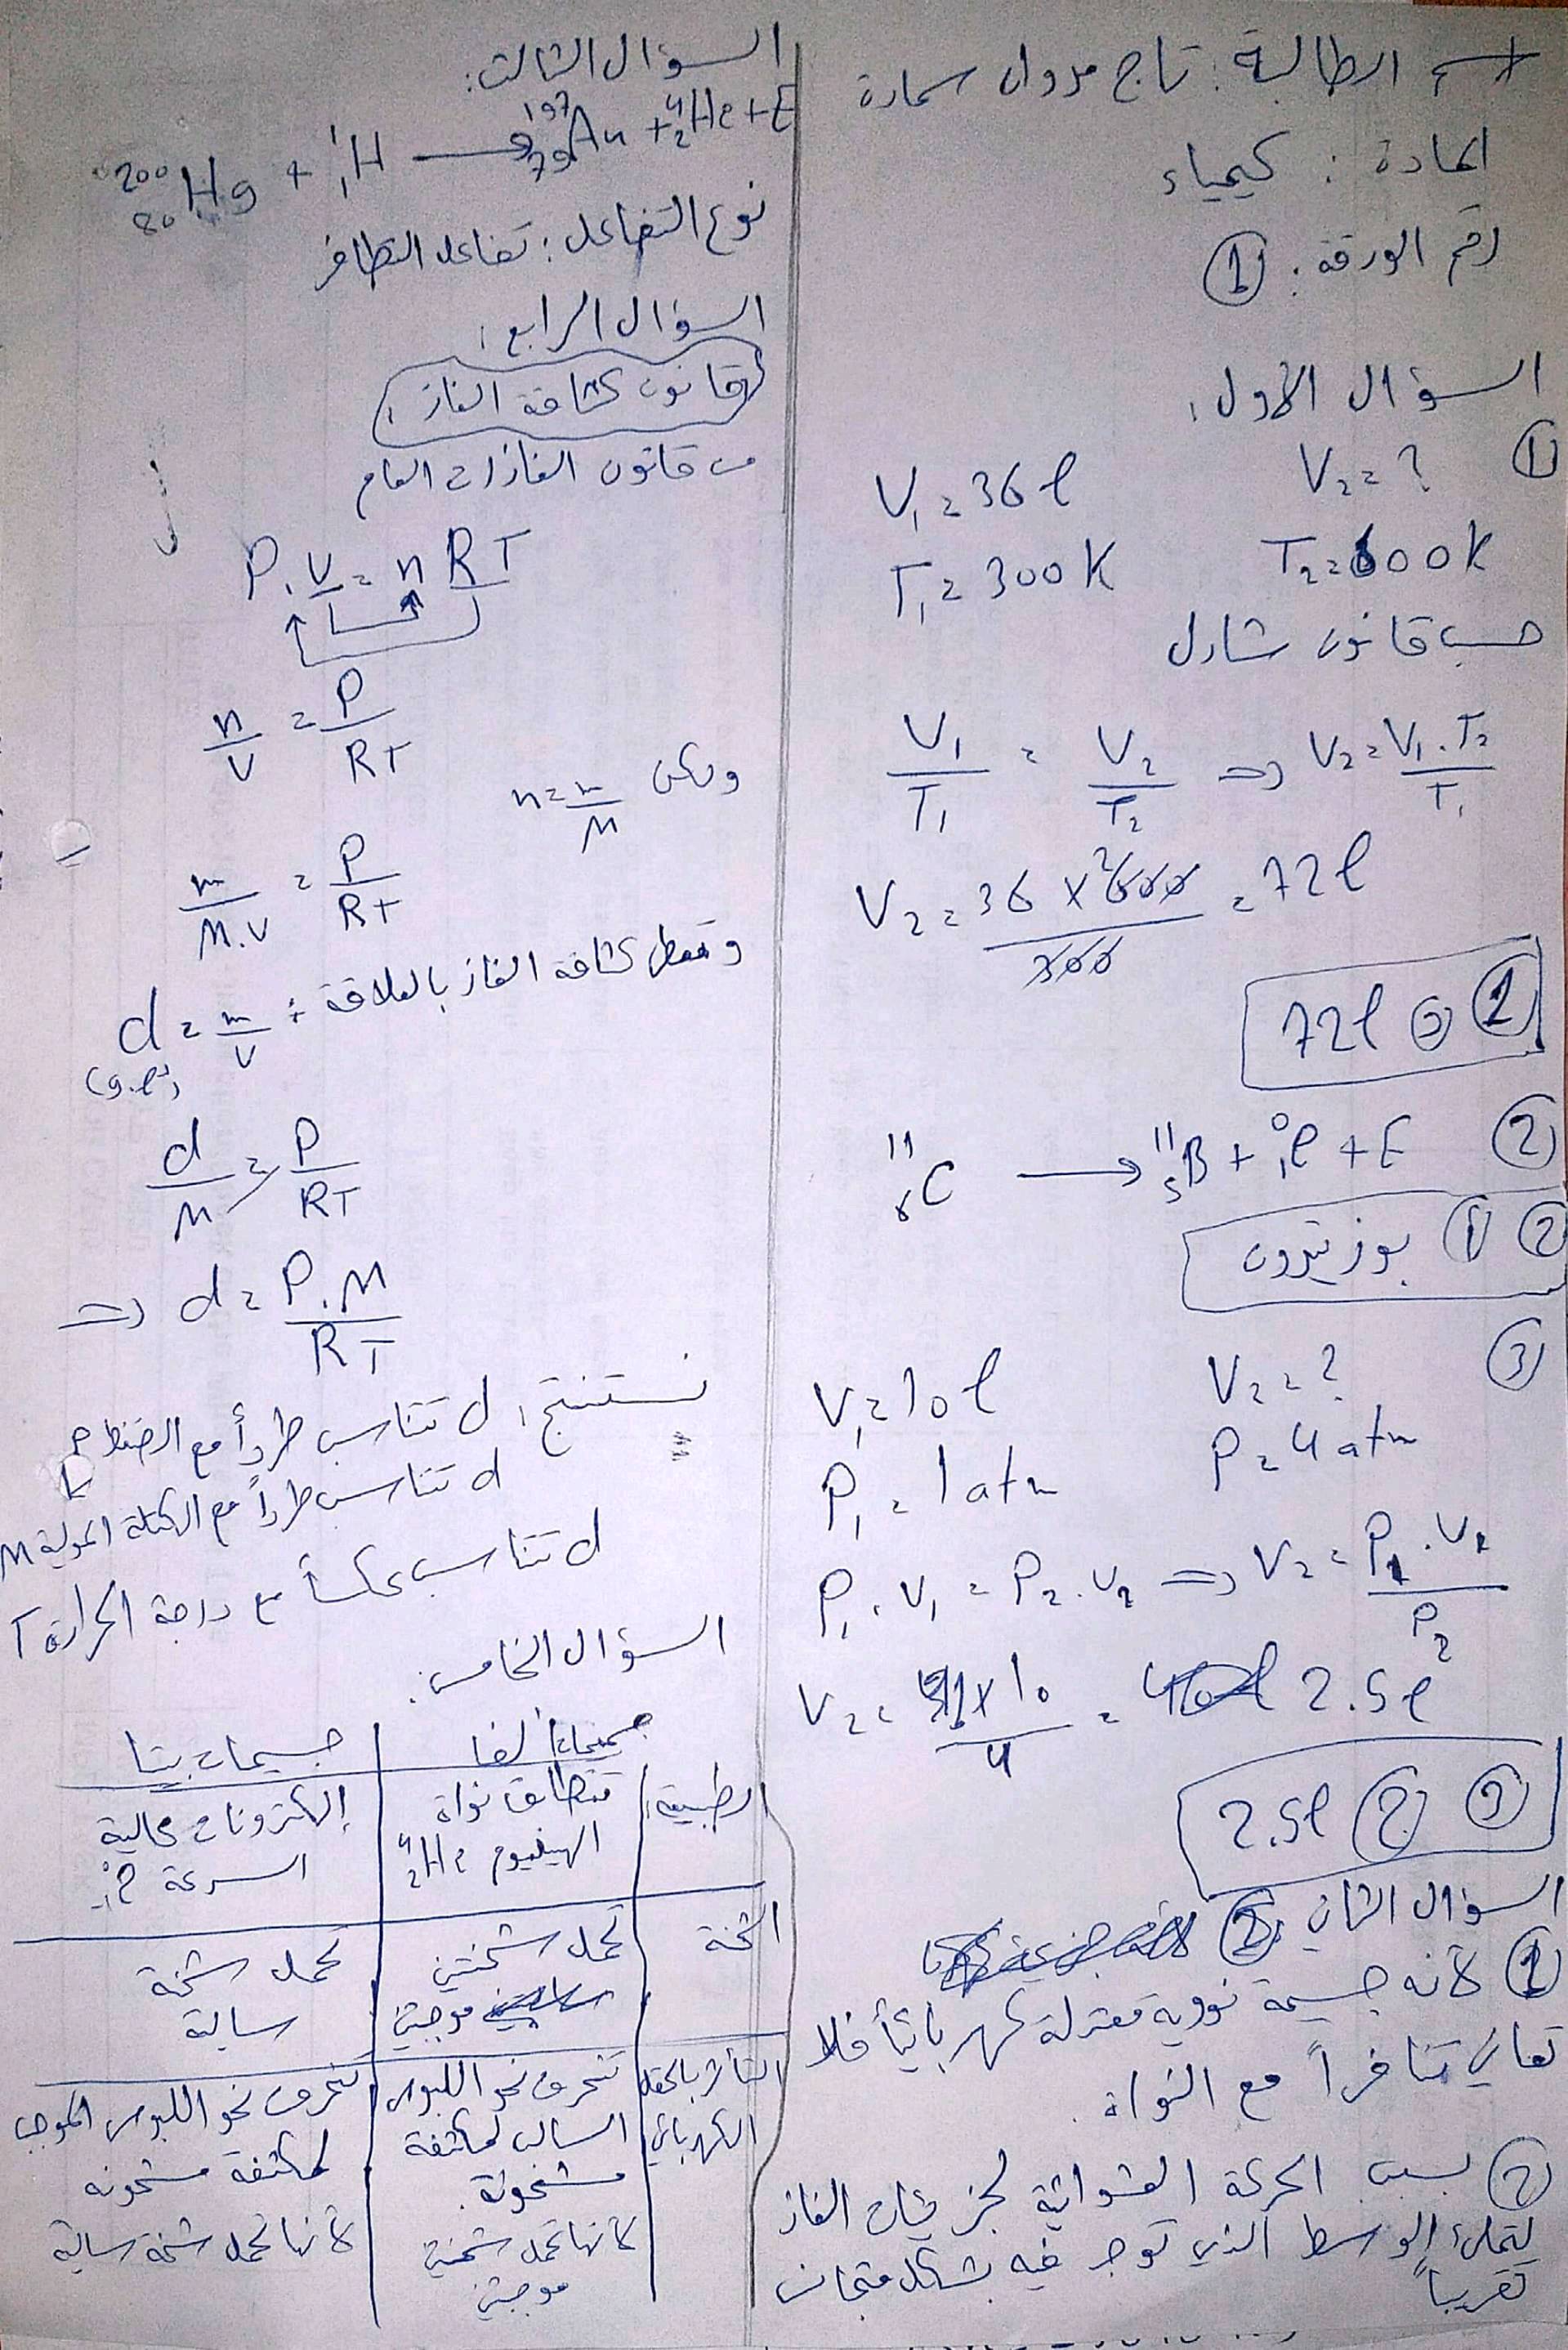 اسم الطالبة: تاج مروان سمارة
المادة: كيمياء
رقم الورقة: ①
السؤال الأول:
① V₁ = 36 l V₂ = ?
T₁ = 300 K T₂ = 600 K
حسب قانون شارل
V₁/T₁ = V₂/T₂ ⇒ V₂ = V₁.T₂/T₁
V₂ = 36 × 600/300 = 72 l
① ⓒ 72 l
② ¹¹₆C → ¹¹₅B + ⁰₁e + E
② ① بوزيترون
③ V₁ = 10 l V₂ = ?
P₁ = 1 atm P = 4 atm
P₁.V₁ = P₂.V₂ ⇒ V₂ = P₁.V₁/P₂
V₂ = 1×10/4 = 2.5 l
③ ② 2.5 l
السؤال الثاني:
① لأنه جسيمة نووية معتدلة كهربائياً فلا
تعاني تنافراً مع النواة.
② بسبب الحركة العشوائية لجزيئات الغاز
لتملء الوسط الذي توجد فيه بشكل متجانس
تقريباً
السؤال الثالث:
²⁰⁰₈₀Hg + ¹₁H → ¹⁹⁷₇₉Au + ⁴₂He + E
نوع التفاعل: تفاعل التطافر
السؤال الرابع:
قانون كثافة الغاز:
من قانون الغازات العام
P.V = n RT
n/V = P/RT
ولكن n = m/M
m/M.V = P/RT
وتعطى كثافة الغاز بالعلاقة: d = m/V
(g.l⁻¹)
d/M = P/RT
⇒ d = P.M/RT
نستنتج: d تتناسب طرداً مع الضغط P
d تتناسب طرداً مع الكتلة المولية M
d تتناسب عكساً مع درجة الحرارة T
السؤال الخامس:
جسيمات ألفا جسيمات بيتا
الطبيعة تتطابق نواة إلكترونات عالية
الهيليوم ⁴₂He السرعة ⁰₋₁e
الشحنة تحمل شحنتين تحمل شحنة
موجبتين سالبة
التأثر بالحقل تنحرف نحو اللبوس تنحرف نحو اللبوس الموجب
الكهربائي السالب لمكثفة لمكثفة مشحونه
مشحونة.
لأنها تحمل شحنتين لأنها تحمل شحنة سالبة
موجبتين